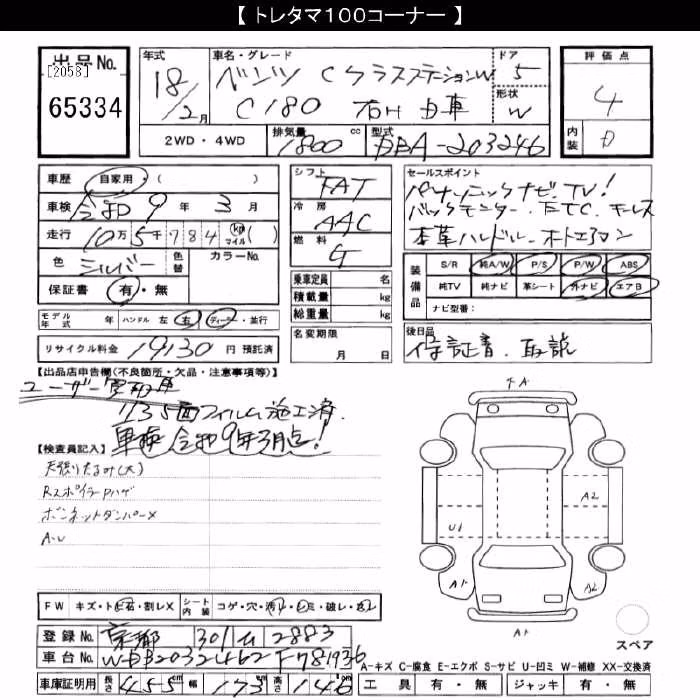 【 トレタマ100コーナー 】
出品No.
[2058]
65334
年式
18/2月
車名・グレード
ベンツ CクラスステーションW
C180 右H 自車
ドア
5
形状
W
評価点
4
内装
D
2WD・4WD
排気量
1800 cc
型式
DBA-203246
車歴 自家用 ( )
車検 令和 9年 3月
走行 10万5千784 km マイル ( )
色 シルバー 色替 カラーNo.
保証書 有・無
モデル年式 年 ハンドル 左 右 ディーラー・並行
リサイクル料金 19130 円 預託済
シフト
FAT
冷房
AAC
燃料
G
乗車定員 名
積載量 kg
総重量 kg
名変期限
月 日
セールスポイント
パナソニックナビ、TV!
バックモニター、ETC、キーレス
本革ハンドル、オートエアコン
装備品 S/R 純A/W P/S P/W ABS
純TV 純ナビ 革シート 外ナビ エアB
ナビ型番:
後日品
保証書、取説
【出品店申告欄(不良箇所・欠品・注意事項等)】
ユーザー買取車
リア5面フィルム施工済
車検 令和9年3月迄!
【検査員記入】
天張りたるみ(大)
RスポイラーPハゲ
ボンネットダンパー×
A・U
FW キズ・トビ石・割レX シート内装 コゲ・穴・汚レ・シミ・破レ・スレ
登録No. 京都 301 ム 2883
車台No. WDB2032462F781936
車庫証明用 長さ 455cm 幅 173cm 高さ 146cm
FA
A2
U1
A1
A2
A1
スペア
A-キズ C-腐食 E-エクボ S-サビ U-凹ミ W-補修 XX-交換済
工具 有・無 ジャッキ 有・無